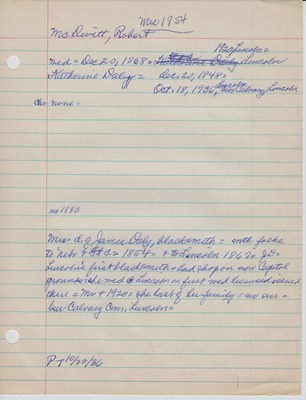 Mrs 1854
McDevitt, Robert
1920 Lincoln =
med = Dec 20, 1868 = Lincoln
Katherine Daly = Dec. 20, 1848 =
Oct. 18, 1936, Lincoln
Calvary, Lincoln
Ch = none =
no 1880.
Mrs = d. of James Daly, blacksmith = with folks
to Neb = 1854 = + to Lincoln 1867 = J.D =
Lincoln's first blacksmith = had shop on now Capitol
grounds = she med on first med license issued
there = Mr + 1920 = she last of her family = no sur =
bur Calvary Cem, Lincoln =
P-J 10/20/36